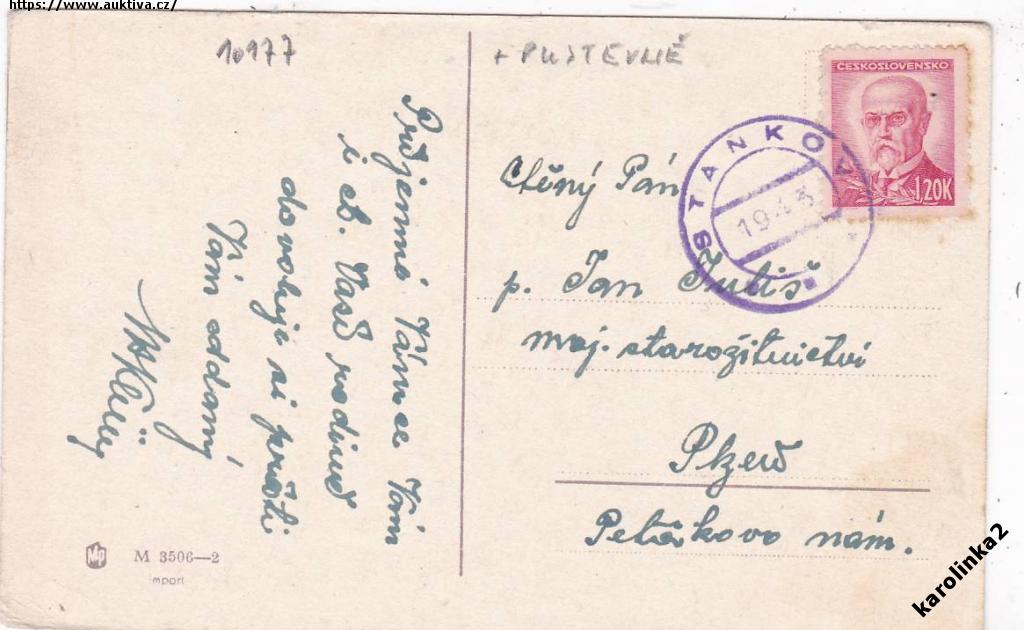 https://www.auktiva.cz/
10177
+ PUSTEVNĚ
ČESKOSLOVENSKO
1.20K
STANKOV
19 43
Příjemné Vánoce Vám
i ct. Vaší rodině
dovoluje si přáti
Vám oddaný
Ctěný Pán
p. Jan
maj. starožitnictví
Plzeň
Petákovo nám.
Mp
M 3506—2
Import
karolinka2